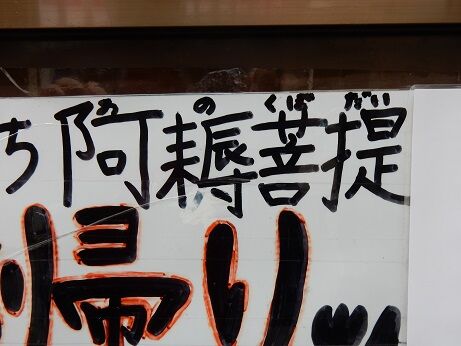 ち阿耨菩提
あのくぼだい
帰り